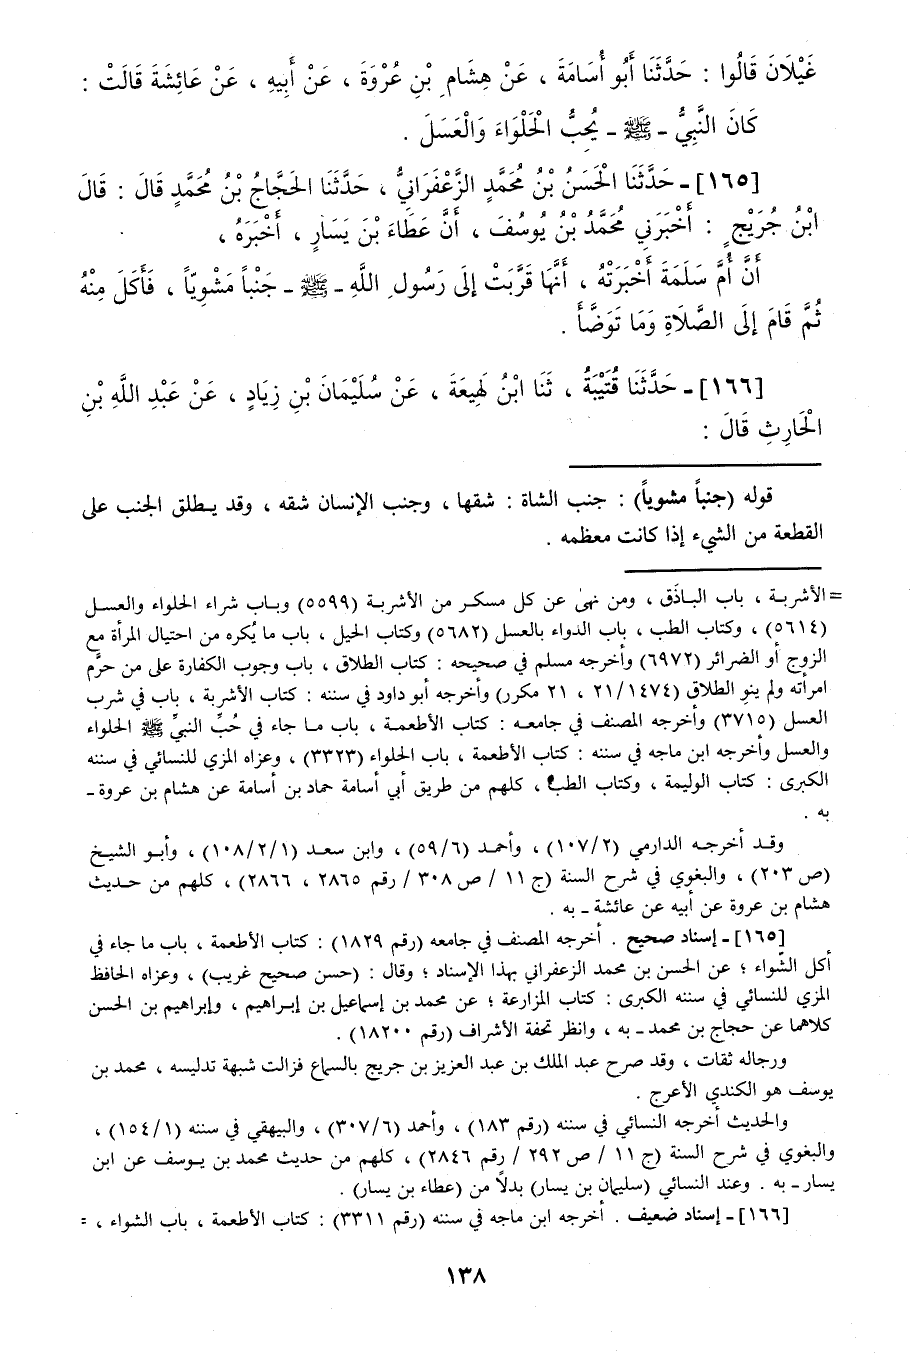 غَيْلَانَ قَالُوا : حَدَّثَنَا أَبُو أُسَامَةَ ، عَنْ هِشَامِ بْنِ عُرْوَةَ ، عَنْ أَبِيهِ ، عَنْ عَائِشَةَ قَالَتْ :
كَانَ النَّبِيُّ - ﷺ - يُحِبُّ الْحَلْوَاءَ وَالْعَسَلَ .
[١٦٥] - حَدَّثَنَا الْحَسَنُ بْنُ مُحَمَّدٍ الزَّعْفَرَانِيُّ ، حَدَّثَنَا الْحَجَّاجُ بْنُ مُحَمَّدٍ قَالَ : قَالَ
ابْنُ جُرَيْجٍ : أَخْبَرَنِي مُحَمَّدُ بْنُ يُوسُفَ ، أَنَّ عَطَاءَ بْنَ يَسَارٍ ، أَخْبَرَهُ ،
أَنَّ أُمَّ سَلَمَةَ أَخْبَرَتْهُ ، أَنَّهَا قَرَّبَتْ إِلَى رَسُولِ اللَّهِ - ﷺ - جَنْباً مَشْوِيّاً ، فَأَكَلَ مِنْهُ
ثُمَّ قَامَ إِلَى الصَّلَاةِ وَمَا تَوَضَّأَ .
[١٦٦] - حَدَّثَنَا قُتَيْبَةُ ، ثَنَا ابْنُ لَهِيعَةَ ، عَنْ سُلَيْمَانَ بْنِ زِيَادٍ ، عَنْ عَبْدِ اللَّهِ بْنِ
الْحَارِثِ قَالَ :
قوله (جنباً مشوياً) : جنب الشاة : شقها ، وجنب الإنسان شقه ، وقد يطلق الجنب على
القطعة من الشيء إذا كانت معظمه .
= الأشربة ، باب الباذَق ، ومن نهى عن كل مسكر من الأشربة (٥٥٩٩) وباب شراء الحلواء والعسل
(٥٦١٤) ، وكتاب الطب ، باب الدواء بالعسل (٥٦٨٢) وكتاب الحيل ، باب ما يُكره من احتيال المرأة مع
الزوج أو الضرائر (٦٩٧٢) وأخرجه مسلم في صحيحه : كتاب الطلاق ، باب وجوب الكفارة على من حرَّم
امرأته ولم ينوِ الطلاق (٢١/١٤٧٤ ، ٢١ مكرر) وأخرجه أبو داود في سننه : كتاب الأشربة ، باب في شرب
العسل (٣٧١٥) وأخرجه المصنف في جامعه : كتاب الأطعمة ، باب ما جاء في حُبِّ النبيِّ ﷺ الحلواء
والعسل وأخرجه ابن ماجه في سننه : كتاب الأطعمة ، باب الحلواء (٣٣٢٣) ، وعزاه المزي للنسائي في سننه
الكبرى : كتاب الوليمة ، وكتاب الطب ، كلهم من طريق أبي أسامة حماد بن أسامة عن هشام بن عروة -
به .
وقد أخرجه الدارمي (١٠٧/٢) ، وأحمد (٥٩/٦) ، وابن سعد (١٠٨/٢/١) ، وأبو الشيخ
(ص ٢٠٣) ، والبغوي في شرح السنة (ج ١١ / ص ٣٠٨ / رقم ٢٨٦٥ ، ٢٨٦٦) ، كلهم من حديث
هشام بن عروة عن أبيه عن عائشة - به .
[١٦٥] - إسناد صحيح . أخرجه المصنف في جامعه (رقم ١٨٢٩) : كتاب الأطعمة ، باب ما جاء في
أكل الشِّواء ؛ عن الحسن بن محمد الزعفراني بهذا الإسناد ؛ وقال : (حسن صحيح غريب) ، وعزاه الحافظ
المزي للنسائي في سننه الكبرى : كتاب المزارعة ؛ عن محمد بن إسماعيل بن إبراهيم ، وإبراهيم بن الحسن
كلاهما عن حجاج بن محمد - به ، وانظر تحفة الأشراف (رقم ١٨٢٠٠) .
ورجاله ثقات ، وقد صرح عبد الملك بن عبد العزيز بن جريج بالسماع فزالت شبهة تدليسه ، محمد بن
يوسف هو الكندي الأعرج .
والحديث أخرجه النسائي في سننه (رقم ١٨٣) ، وأحمد (٣٠٧/٦) ، والبيهقي في سننه (١٥٤/١) ،
والبغوي في شرح السنة (ج ١١ / ص ٢٩٢ / رقم ٢٨٤٦) ، كلهم من حديث محمد بن يوسف عن ابن
يسار - به . وعند النسائي (سليمان بن يسار) بدلاً من (عطاء بن يسار) .
[١٦٦] - إسناد ضعيف . أخرجه ابن ماجه في سننه (رقم ٣٣١١) : كتاب الأطعمة ، باب الشواء ، =
١٣٨